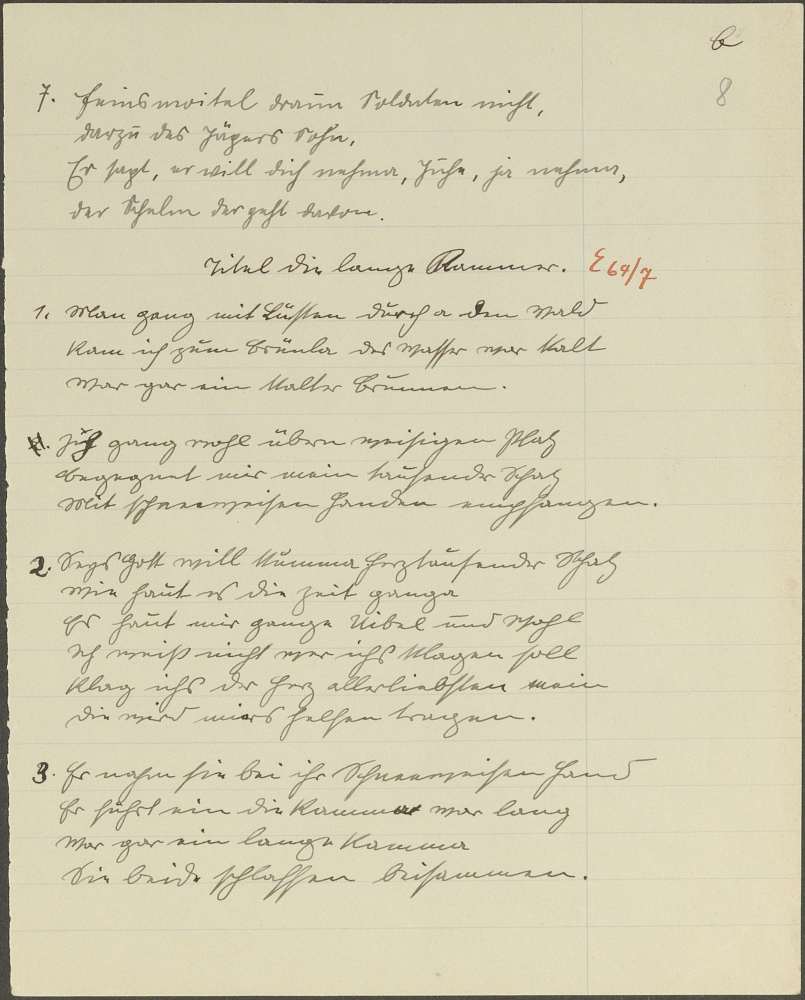 b
8
7. Feinsmoitel draun Soldaten nicht,
darzu des Jägers Sohn,
Er sagt, er will dich nehma, Juhe, ja nehma,
der Schelm der geht davon.
Titel die lange Kammer. E 64/7
1. Man gang mit Lusten durch a den Wald
kam ich zum Brünla des Wasser war kalt
war gar ein kalter Brunnen.
Ich gang wohl übern weisigen Platz
begegnet mir mein tausender Schatz
Mit schneeweisen Handen empfangen.
2. Segs Gott will kumma herztausender Schatz
wie haut es die Zeit ganga
Es haut mir ganga Uibel und Wohl
Ich weiß nicht wer ichs klagen soll
klag ichs der herz allerliebsten mein
die wird miers helfen tragen.
3. Er nahm sie bei ihr Schneeweisen Hand
Er führt ein die Kamma war lang
War gar ein lange Kamma
Die beide schlaffen beisammen.